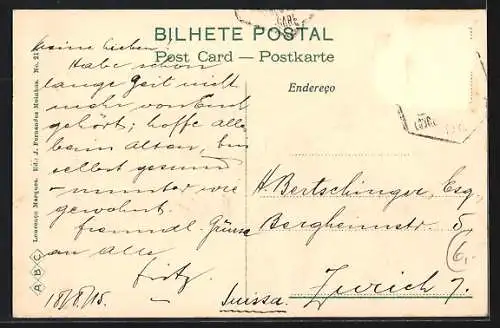 BILHETE POSTAL
Post Card — Postkarte
Endereço
Meine Lieben!
Habe schon
lange Zeit nicht
mehr von Euch
gehört; hoffe alles
beim Alten, bin
selbst gesund
munter wie
gewohnt.
freundl. Grüsse
an Alle
Fritz
18/8/15.
H. Bertschinger, Esq.
Bergheimstr. 5
Zürich 7.
Suissa.
6.-
A B C Lourenço Marques. Ed: J. Fernandes Moinhos. No. 21